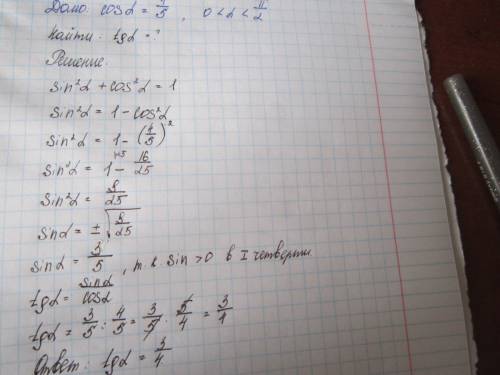 Дано: cosα = 4/5, 0 < α < π/2
Найти: tgα = ?
Решение:
sin²α + cos²α = 1
sin²α = 1 - cos²α
sin²α = 1 - (4/5)²
sin²α = 1 - 16/25
sin²α = 9/25
sinα = ±√(9/25)
sinα = 3/5, т.к sin > 0 в I четверти.
tgα = sinα/cosα
tgα = 3/5 : 4/5 = 3/5 · 5/4 = 3/4
Ответ: tgα = 3/4